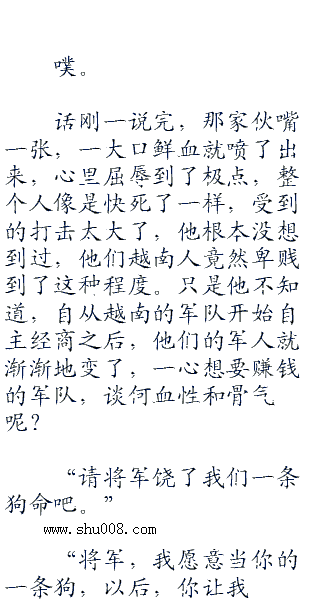 噗。
话刚一说完，那家伙嘴
一张，一大口鲜血就喷了出
来，心里屈辱到了极点，整
个人像是快死了一样，受到
的打击太大了，他根本没想
到过，他们越南人竟然卑贱
到了这种程度。只是他不知
道，自从越南的军队开始自
主经商之后，他们的军人就
渐渐地变了，一心想要赚钱
的军队，谈何血性和骨气
呢？
“请将军饶了我们一条
狗命吧。”
www.shu008.com
“将军，我愿意当你的
一条狗，以后，你让我